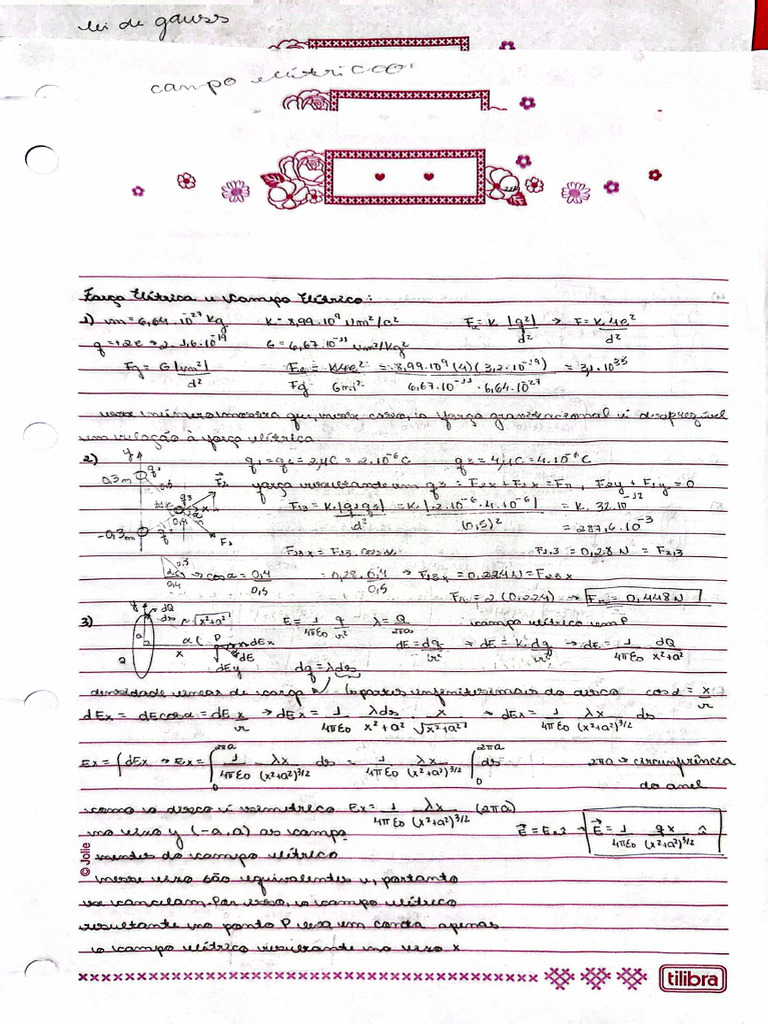 lei de gauss
campo elétrico
Força Elétrica e Campo Elétrico:
1) m = 6,64·10⁻²⁷ Kg K = 8,99·10⁹ Nm²/C² Fe = K |q²|/d² → F = K 4e²/d²
q = +2e = 2·1,6·10⁻¹⁹ G = 6,67·10⁻¹¹ Nm²/Kg²
Fg = G|m²|/d² Fe/Fg = K4e²/Gm² = 8,99·10⁹ (4)(3,2·10⁻¹⁹)/6,67·10⁻¹¹·6,64·10²⁷ = 3,1·10³⁵
esse número mostra que, nesse caso, a força gravitacional é desprezível
em relação à força elétrica
2) y q₁ = q₂ = 2μC = 2·10⁻⁶C q₃ = 4μC = 4·10⁻⁶C
0,3m q₁ F₂ força resultante em q₃ : F₂x + F₁x = Fr, F₂y + F₁y = 0
q₃ 0,4 x F₁₃ = K|q₁q₃|/d² = K|2·10⁻⁶·4·10⁻⁶|/(0,5)² = K·32·10⁻¹²
-0,3m q₂ F₁ = 287,6·10⁻³
F₁₃x = F₁₃·cosα F₁,₃ = 0,28N = F₂,₃
0,5 α 0,4 → cosα = 0,4/0,5 = 0,28·0,4/0,5 → F₁₃x = 0,224N = F₂₃x
Fr = 2(0,224) → Fr = 0,448N
3) y dQ ds r √x²+a² E = 1/4πε₀ q/r² λ = Q/2πa campo elétrico em P
a α P dEx dE = dq/r² → dE = K dq/r² → dE = 1/4πε₀ dQ/x²+a²
Q x dEy dE dq = λds
densidade linear de carga partes infinitesimais do disco cosα = x/r
dEx = dEcosα = dE x/r → dEx = 1/4πε₀ λds/x²+a² x/√x²+a² → dEx = 1/4πε₀ λx/(x²+a²)³/² ds
Ex = ∫dEx → Ex = ∫₀²πᵃ 1/4πε₀ λx/(x²+a²)³/² ds = 1/4πε₀ λx/(x²+a²)³/² ∫₀²πᵃ ds 2πa → circunferência
do anel
como o disco é simétrico Ex = 1/4πε₀ λx/(x²+a²)³/² (2πa)
no eixo y (-a,a) as compo E⃗ = Ex î → E⃗ = 1/4πε₀ qx/(x²+a²)³/² î
nentes do campo elétrico
nesse eixo são equivalentes e, portanto
se cancelam. Por isso, o campo elétrico
resultante no ponto P leva em conta apenas
o campo elétrico resultante no eixo x
© Jolie
tilibra